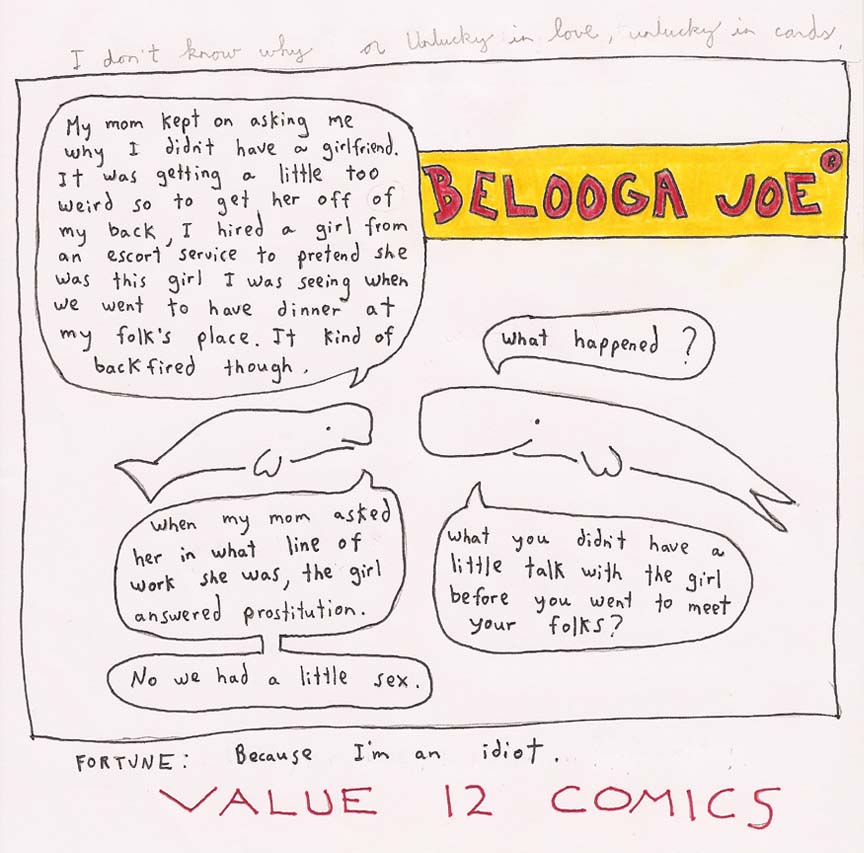 I don't know why or Unlucky in love, unlucky in cards.
My mom kept on asking me
why I didn't have a girlfriend.
It was getting a little too
weird so to get her off of
my back, I hired a girl from
an escort service to pretend she
was this girl I was seeing when
we went to have dinner at
my folk's place. It kind of
backfired though.
BELOOGA JOE®
What happened?
When my mom asked
her in what line of
work she was, the girl
answered prostitution.
What you didn't have a
little talk with the girl
before you went to meet
your folks?
No we had a little sex.
FORTUNE: Because I'm an idiot.
VALUE 12 COMICS